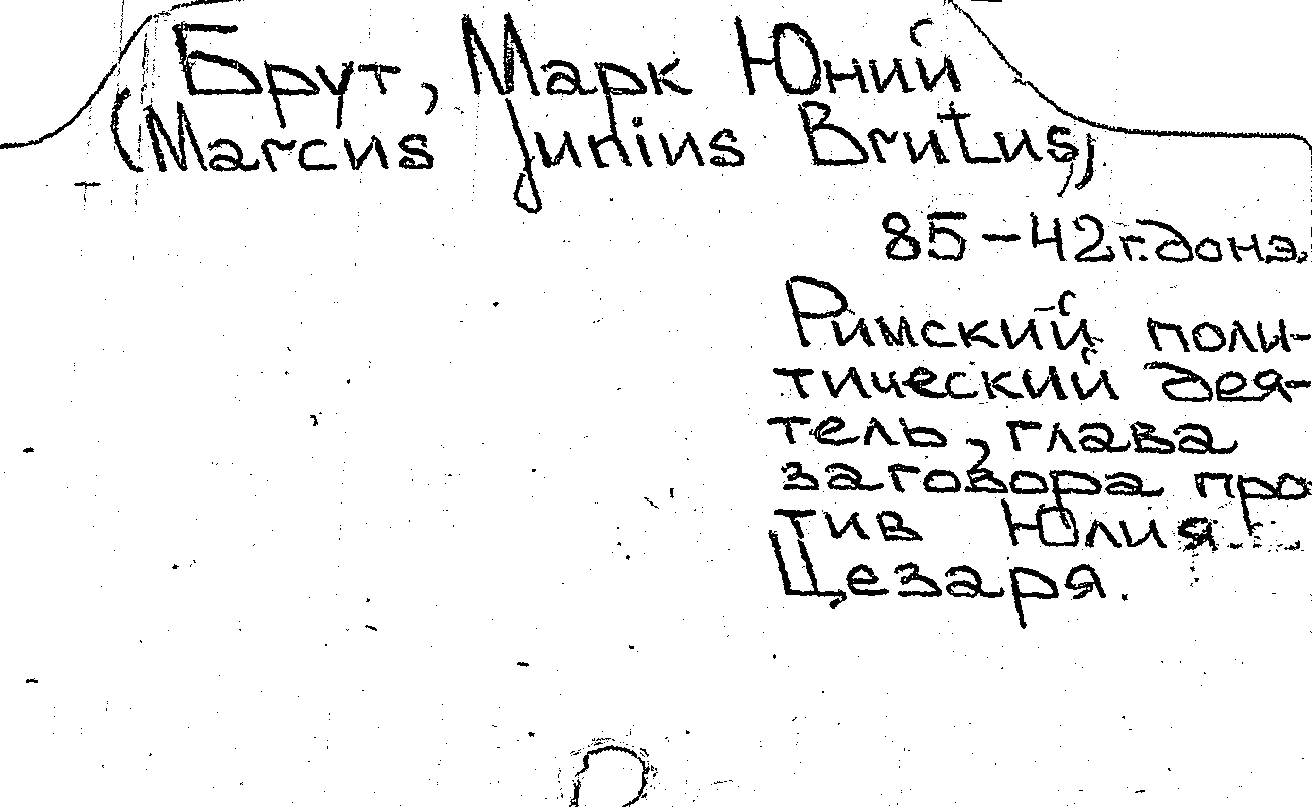 Брут, Марк Юний
(Marcus Junius Brutus),
85-42 г. до н.э.
Римский поли-
тический дея-
тель, глава
заговора про
тив Юлия
Цезаря.